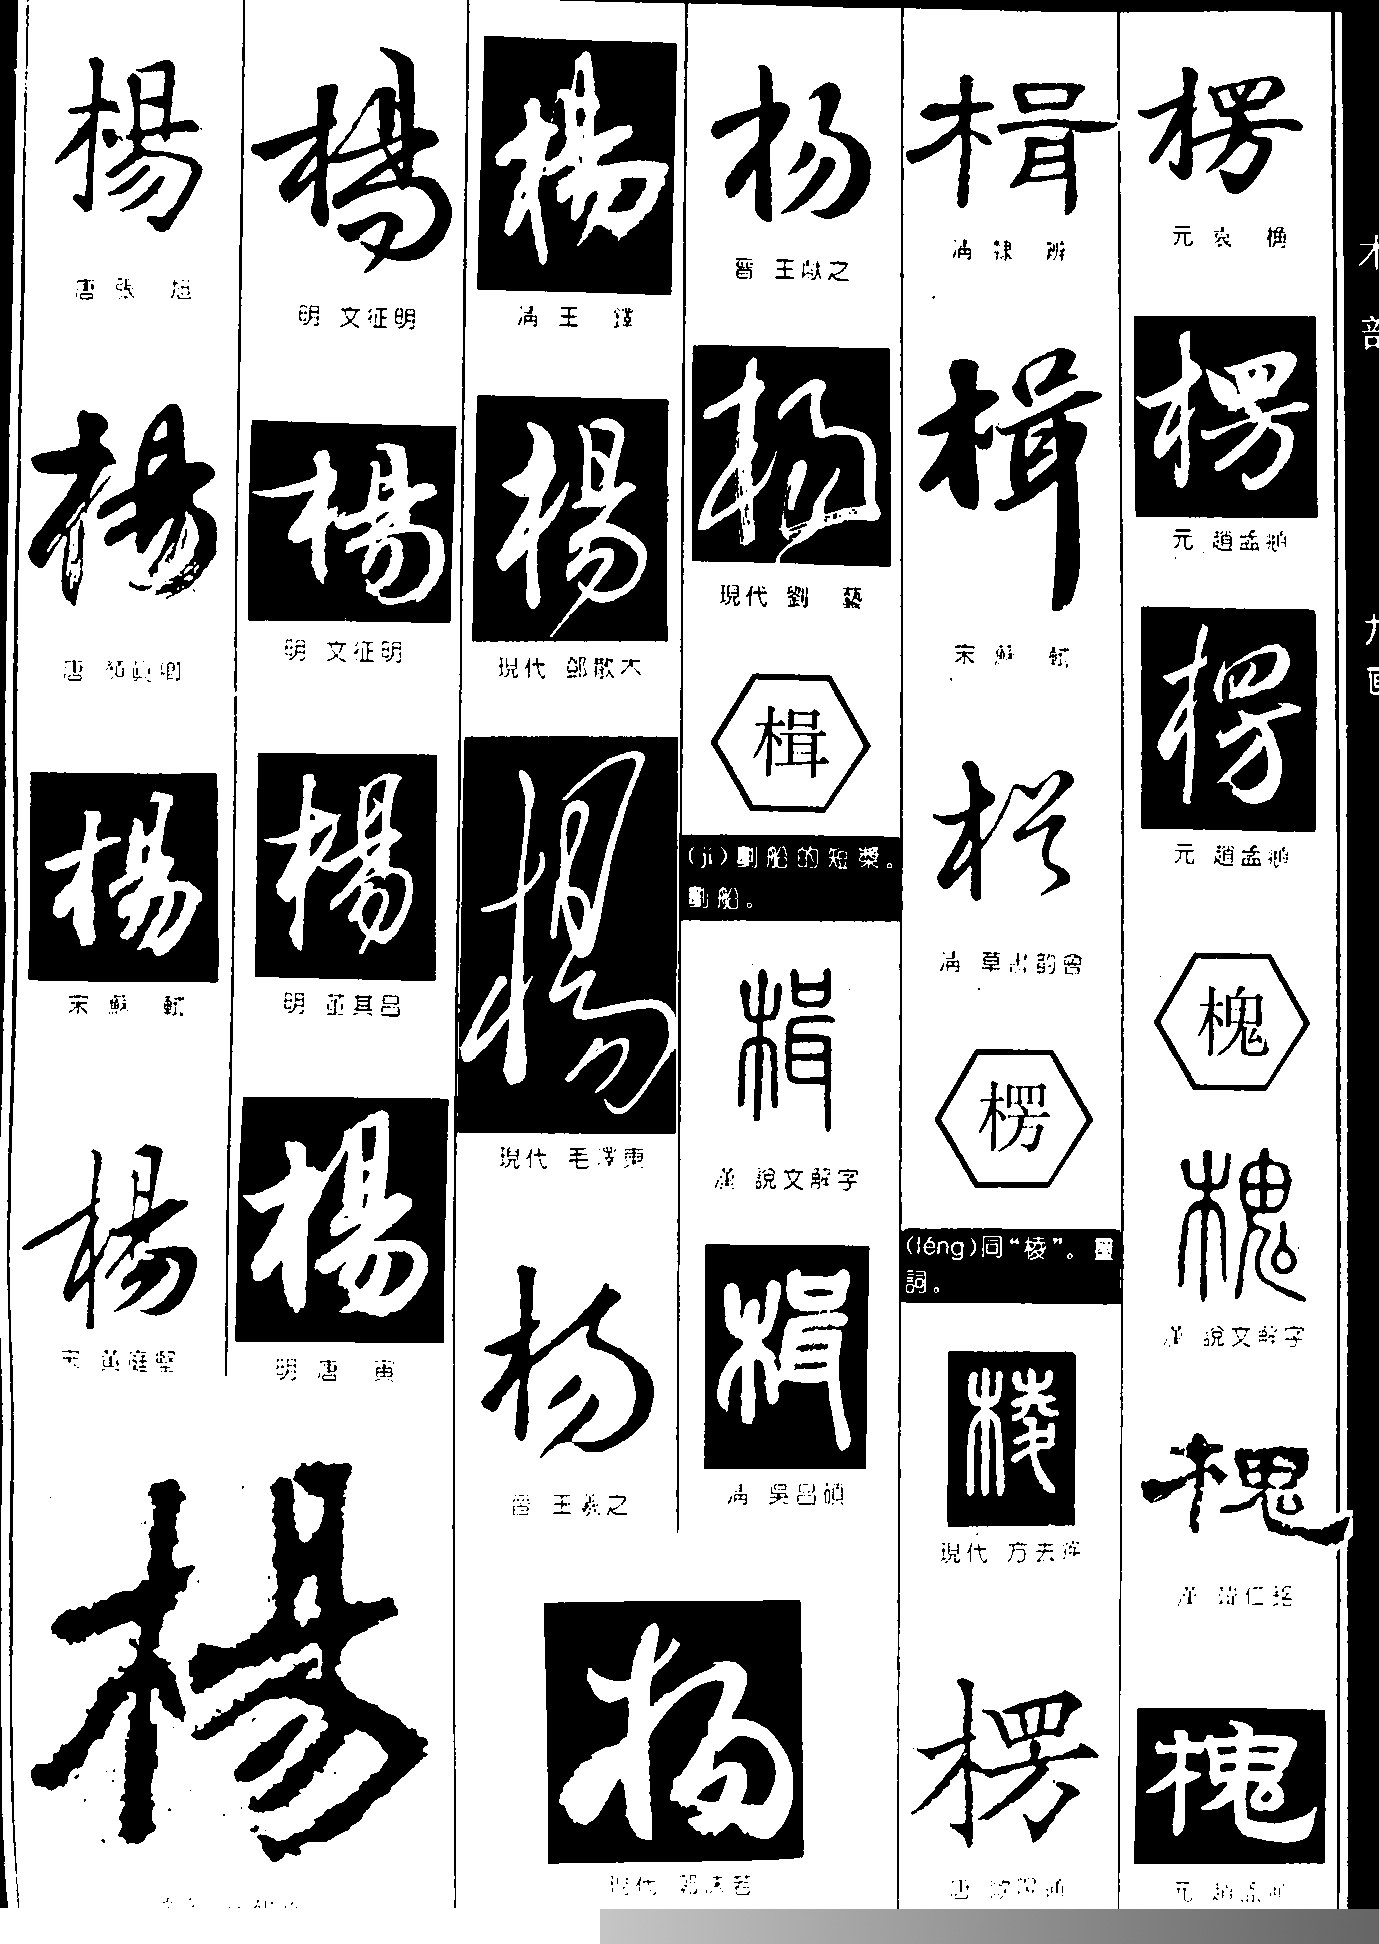 楊
唐 張 旭
楊
唐 顏真卿
楊
宋 蘇 軾
楊
宋 黃庭堅
楊
楊
明 文征明
楊
明 文征明
楊
明 董其昌
楊
明 唐 寅
楊
清 王 鐸
楊
現代 鄧散木
楊
現代 毛澤東
楊
晉 王羲之
楊
現代 郭沫若
楊
晉 王獻之
楊
現代 劉 藝
楫
(jí)劃船的短槳。
劃船。
楫
漢 說文解字
楫
清 吳昌碩
楫
清 隸 辨
楫
宋 蘇 軾
楫
清 草書韵會
楞
(léng)同“棱”。
詞。
棱
現代
楞
唐
楞
元 袁 桷
楞
元 趙孟頫
楞
元 趙孟頫
槐
槐
漢 說文解字
槐
漢 韓仁銘
槐
元 趙孟頫
木
部
九
畫